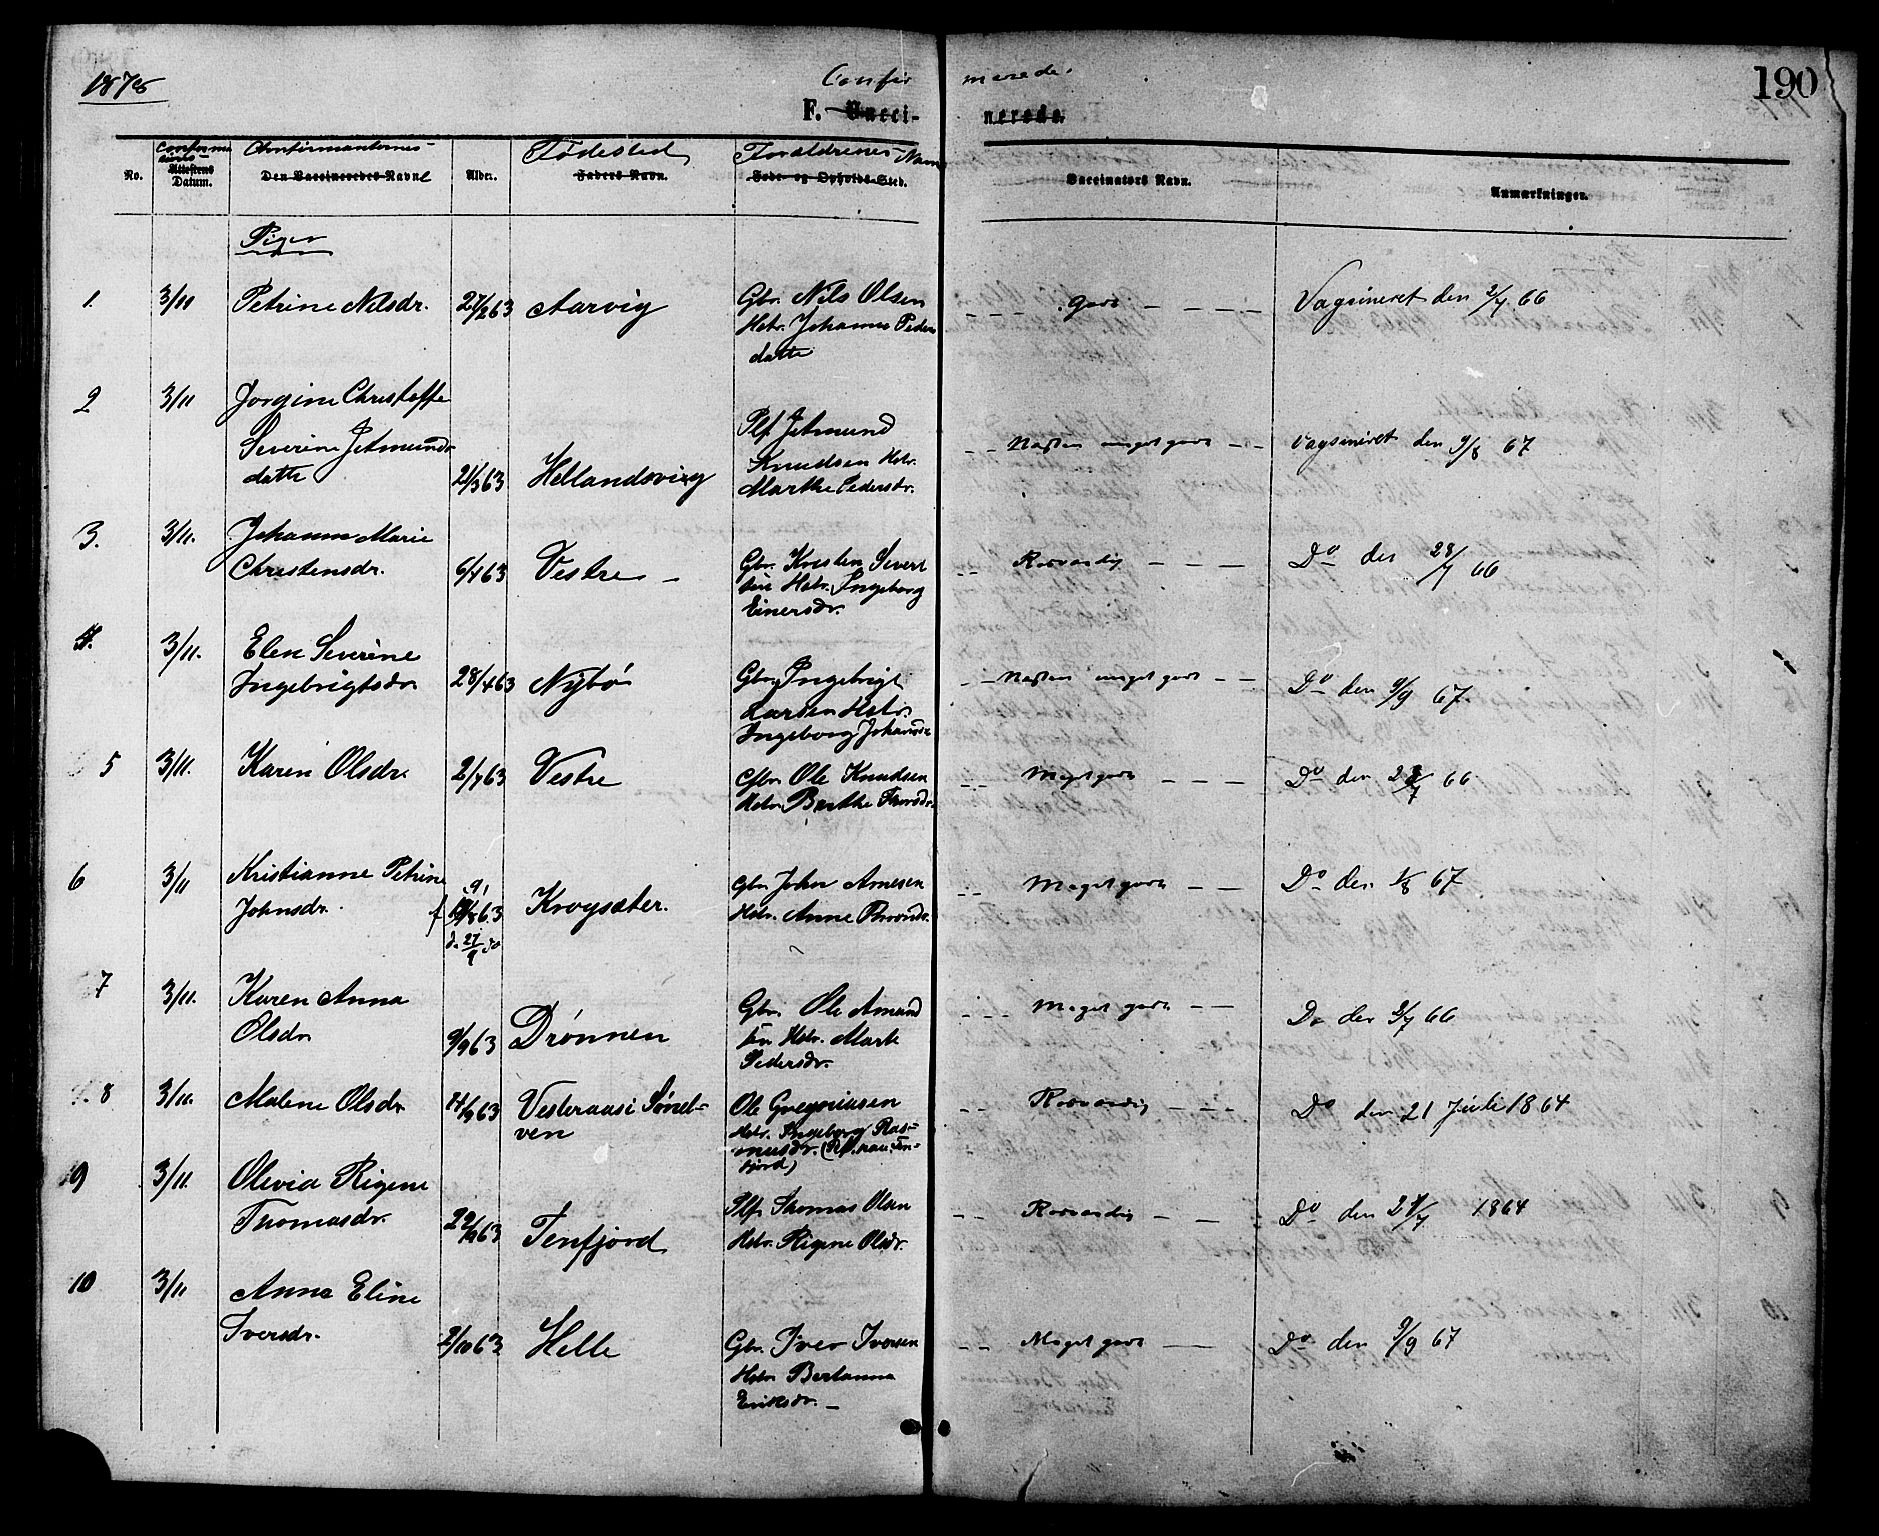 1878
Confir marede.
190
F. Vacci- nerede.
No.
Attestens Datum.
Confirmanternes
Den Vaccineredes Navn
Alder.
Fødested
Faders Navn.
Forældrenes Navn
Føde- og Opholds-Sted.
Vaccinators Navn.
Anmærkninger.
Piger
1. 3/11 Petrine Nilsdr. 27/2 63 Aarvig Gbr. Nils Olsen godt Vagsineret den 2/7 66
Hstr. Johanne Peders
datte
2 3/11 Jørgine Christoffe
Severine Jetmunds Plf. Jetmund Næsten meget godt Vagsineret den 9/8 67
datte 21/3 63 Hellandsvig Knudsen Hstr.
Marthe Pedersdr.
3. 3/11. Johanne Marie
Christensdr. 6/4 63 Vestre Gbr. Kristen Sivert Rosværdig Do den 28/7 66
sen Hstr. Ingeborg
Einersdr.
4. 3/11. Elen Severine
Ingebrigtsdr 28/4 63 Nybø Gbr. Ingebrigt Næsten meget godt Do den 9/9 67.
Larsen Hstr.
Ingeborg Johansdr
5 3/11. Karen Olsdr. 2/7 63 Vestre Gbr. Ole Knudsen Meget godt Do den 28/7 66
Hstr. Berthe Thorsdr.
6 3/11 Kristianne Petrine Gbr. John Arnesen Meget godt Do den 1/8 67
Johnsdr. f 19/8 63 Krogsæter. Hstr. Anne Brandsdr.
d. 27/9 do
7 3/11. Karen Anna Gbr. Ole Amund Meget godt Do den 2/7 66
Olsdr 9/9 63 Drønnen sen Hstr. Marte
Pedersdr.
8 3/11. Malene Olsdr 14/9 63 Vesteraas i Søndel- Ole Gregoriusen Rosværdig Do den 21 Juli 1864
ven Hstr. Ingeborg Ras-
musdr. (Plf. Ten-
fjord)
9 3/11. Olevia Rigene
Thomasdr. 22/9 63 Tenfjord Plf. Thomas Olsen Rosværdig Do den 28/7 1864
Hstr. Rigene Olsdr.
10 3/11 Anna Eline
Iversdr. 2/10 63 Helle Gbr. Iver Iversen Meget godt Do den 9/9 67
Hstr Bertanna
Eriksdr.